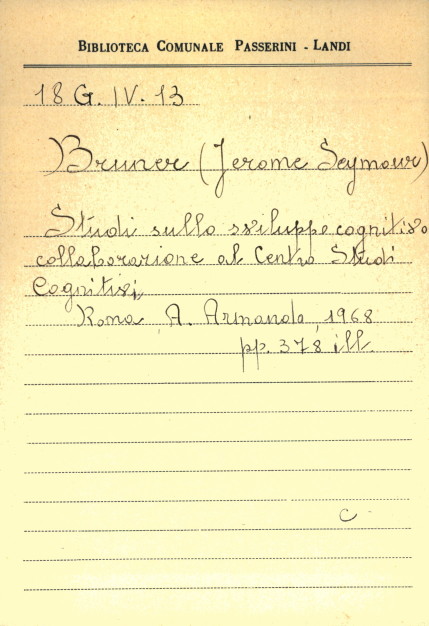 BIBLIOTECA COMUNALE PASSERINI - LANDI
18 G. IV. 13
Bruner (Jerome Seymour)
Studi sullo sviluppo cognitivo
collaborazione al Centro Studi
Cognitivi,
Roma, A. Armando, 1968
pp. 378 ill.
C